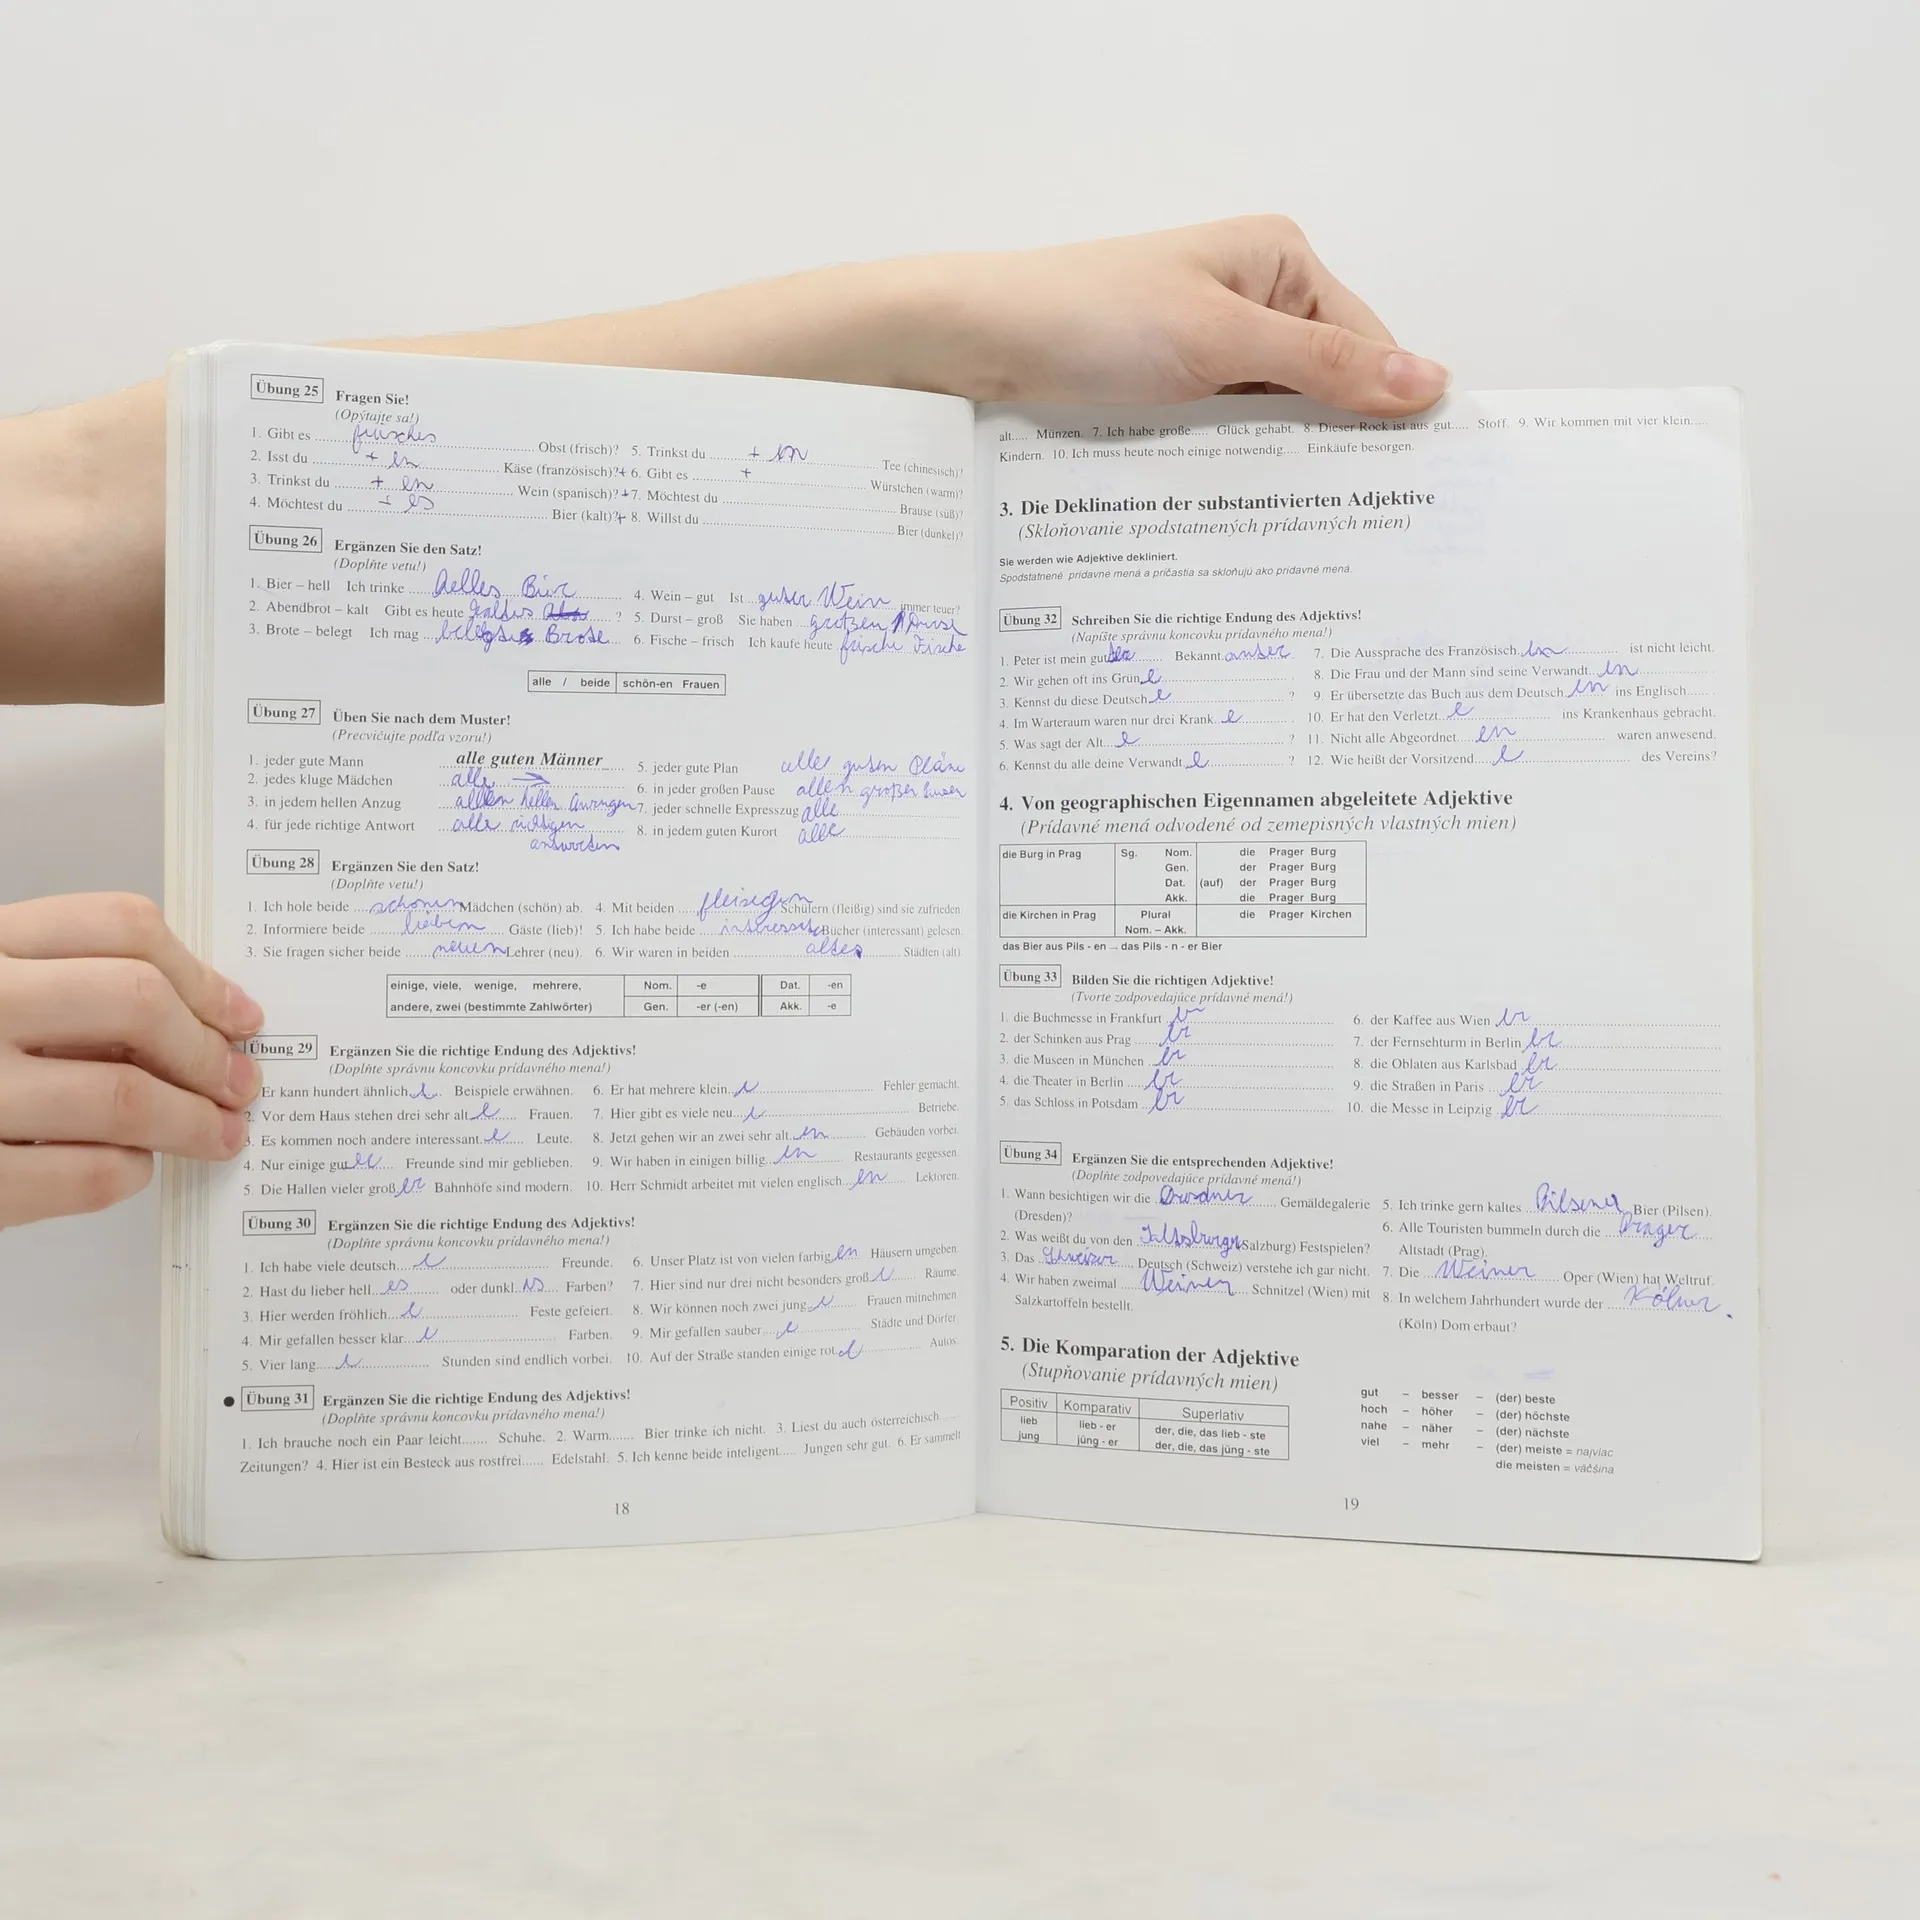 Übung 25 Fragen Sie!
(Opýtajte sa!)
1. Gibt es frisches Obst (frisch)? 5. Trinkst du + en Tee (chinesisch)?
2. Isst du + en Käse (französisch)?+ 6. Gibt es + Würstchen (warm)?
3. Trinkst du + en Wein (spanisch)?+ 7. Möchtest du Brause (süß)?
4. Möchtest du + es Bier (kalt)?+ 8. Willst du Bier (dunkel)?
Übung 26 Ergänzen Sie den Satz!
(Doplňte vetu!)
1. Bier – hell Ich trinke helles Bier 4. Wein – gut Ist guter Wein immer teuer?
2. Abendbrot – kalt Gibt es heute ? 5. Durst – groß Sie haben großen Durst
3. Brote – belegt Ich mag Brote 6. Fische – frisch Ich kaufe heute frische Fische
alle / beide schön-en Frauen
Übung 27 Üben Sie nach dem Muster!
(Precvičujte podľa vzoru!)
1. jeder gute Mann alle guten Männer 5. jeder gute Plan alle guten Pläne
2. jedes kluge Mädchen alle 6. in jeder großen Pause allen großen
3. in jedem hellen Anzug allen hellen 7. jeder schnelle Expresszug alle
4. für jede richtige Antwort alle richtigen 8. in jedem guten Kurort alle
antworten
Übung 28 Ergänzen Sie den Satz!
(Doplňte vetu!)
1. Ich hole beide schonen Mädchen (schön) ab. 4. Mit beiden fleisigen Schülern (fleißig) sind sie zufrieden.
2. Informiere beide lieben Gäste (lieb)! 5. Ich habe beide Bücher (interessant) gelesen.
3. Sie fragen sicher beide neuen Lehrer (neu). 6. Wir waren in beiden Städten (alt).
einige, viele, wenige, mehrere, Nom. -e Dat. -en
andere, zwei (bestimmte Zahlwörter) Gen. -er (-en) Akk. -e
Übung 29 Ergänzen Sie die richtige Endung des Adjektivs!
(Doplňte správnu koncovku prídavného mena!)
Er kann hundert ähnlich e Beispiele erwähnen. 6. Er hat mehrere klein e Fehler gemacht.
2. Vor dem Haus stehen drei sehr alt e Frauen. 7. Hier gibt es viele neu e Betriebe.
3. Es kommen noch andere interessant e Leute. 8. Jetzt gehen wir an zwei sehr alt en Gebäuden vorbei.
4. Nur einige gut e Freunde sind mir geblieben. 9. Wir haben in einigen billig en Restaurants gegessen.
5. Die Hallen vieler groß er Bahnhöfe sind modern. 10. Herr Schmidt arbeitet mit vielen englisch en Lektoren.
Übung 30 Ergänzen Sie die richtige Endung des Adjektivs!
(Doplňte správnu koncovku prídavného mena!)
1. Ich habe viele deutsch e Freunde. 6. Unser Platz ist von vielen farbig en Häusern umgeben.
2. Hast du lieber hell es oder dunkl es Farben? 7. Hier sind nur drei nicht besonders groß e Räume.
3. Hier werden fröhlich e Feste gefeiert. 8. Wir können noch zwei jung e Frauen mitnehmen
4. Mir gefallen besser klar e Farben. 9. Mir gefallen sauber e Städte und Dörfer.
5. Vier lang e Stunden sind endlich vorbei. 10. Auf der Straße standen einige rot e Autos.
Übung 31 Ergänzen Sie die richtige Endung des Adjektivs!
(Doplňte správnu koncovku prídavného mena!)
1. Ich brauche noch ein Paar leicht...... Schuhe. 2. Warm...... Bier trinke ich nicht. 3. Liest du auch österreichisch......
Zeitungen? 4. Hier ist ein Besteck aus rostfrei...... Edelstahl. 5. Ich kenne beide inteligent..... Jungen sehr gut. 6. Er sammelt
18
alt..... Münzen. 7. Ich habe große..... Glück gehabt. 8. Dieser Rock ist aus gut..... Stoff. 9. Wir kommen mit vier klein.....
Kindern. 10. Ich muss heute noch einige notwendig..... Einkäufe besorgen.
3. Die Deklination der substantivierten Adjektive
(Skloňovanie spodstatnených prídavných mien)
Sie werden wie Adjektive dekliniert.
Spodstatnené prídavné mená a príčastia sa skloňujú ako prídavné mená.
Übung 32 Schreiben Sie die richtige Endung des Adjektivs!
(Napíšte správnu koncovku prídavného mena!)
1. Peter ist mein gut er Bekannt. 7. Die Aussprache des Französisch en ist nicht leicht.
2. Wir gehen oft ins Grün e . 8. Die Frau und der Mann sind seine Verwandt en .
3. Kennst du diese Deutsch e ? 9. Er übersetzte das Buch aus dem Deutsch en ins Englisch...... .
4. Im Warteraum waren nur drei Krank e . 10. Er hat den Verletzt e ins Krankenhaus gebracht.
5. Was sagt der Alt e ? 11. Nicht alle Abgeordnet en waren anwesend.
6. Kennst du alle deine Verwandt e ? 12. Wie heißt der Vorsitzend e des Vereins?
4. Von geographischen Eigennamen abgeleitete Adjektive
(Prídavné mená odvodené od zemepisných vlastných mien)
die Burg in Prag Sg. Nom. die Prager Burg
Gen. der Prager Burg
Dat. (auf) der Prager Burg
Akk. die Prager Burg
die Kirchen in Prag Plural die Prager Kirchen
Nom. – Akk.
das Bier aus Pils - en → das Pils - n - er Bier
Übung 33 Bilden Sie die richtigen Adjektive!
(Tvorte zodpovedajúce prídavné mená!)
1. die Buchmesse in Frankfurt er 6. der Kaffee aus Wien er
2. der Schinken aus Prag er 7. der Fernsehturm in Berlin er
3. die Museen in München er 8. die Oblaten aus Karlsbad er
4. die Theater in Berlin er 9. die Straßen in Paris er
5. das Schloss in Potsdam er 10. die Messe in Leipzig er
Übung 34 Ergänzen Sie die entsprechenden Adjektive!
(Doplňte zodpovedajúce prídavné mená!)
1. Wann besichtigen wir die Dresdner Gemäldegalerie 5. Ich trinke gern kaltes Pilsener Bier (Pilsen).
(Dresden)? 6. Alle Touristen bummeln durch die Prager
2. Was weißt du von den (Salzburg) Festspielen? Altstadt (Prag).
3. Das Schweizer Deutsch (Schweiz) verstehe ich gar nicht. 7. Die Weiner Oper (Wien) hat Weltruf.
4. Wir haben zweimal Weiner Schnitzel (Wien) mit 8. In welchem Jahrhundert wurde der Kölner
Salzkartoffeln bestellt. (Köln) Dom erbaut?
5. Die Komparation der Adjektive
(Stupňovanie prídavných mien)
Positiv Komparativ Superlativ
lieb lieb - er der, die, das lieb - ste
jung jüng - er der, die, das jüng - ste
gut – besser – (der) beste
hoch – höher – (der) höchste
nahe – näher – (der) nächste
viel – mehr – (der) meiste = najviac
die meisten = väčšina
19